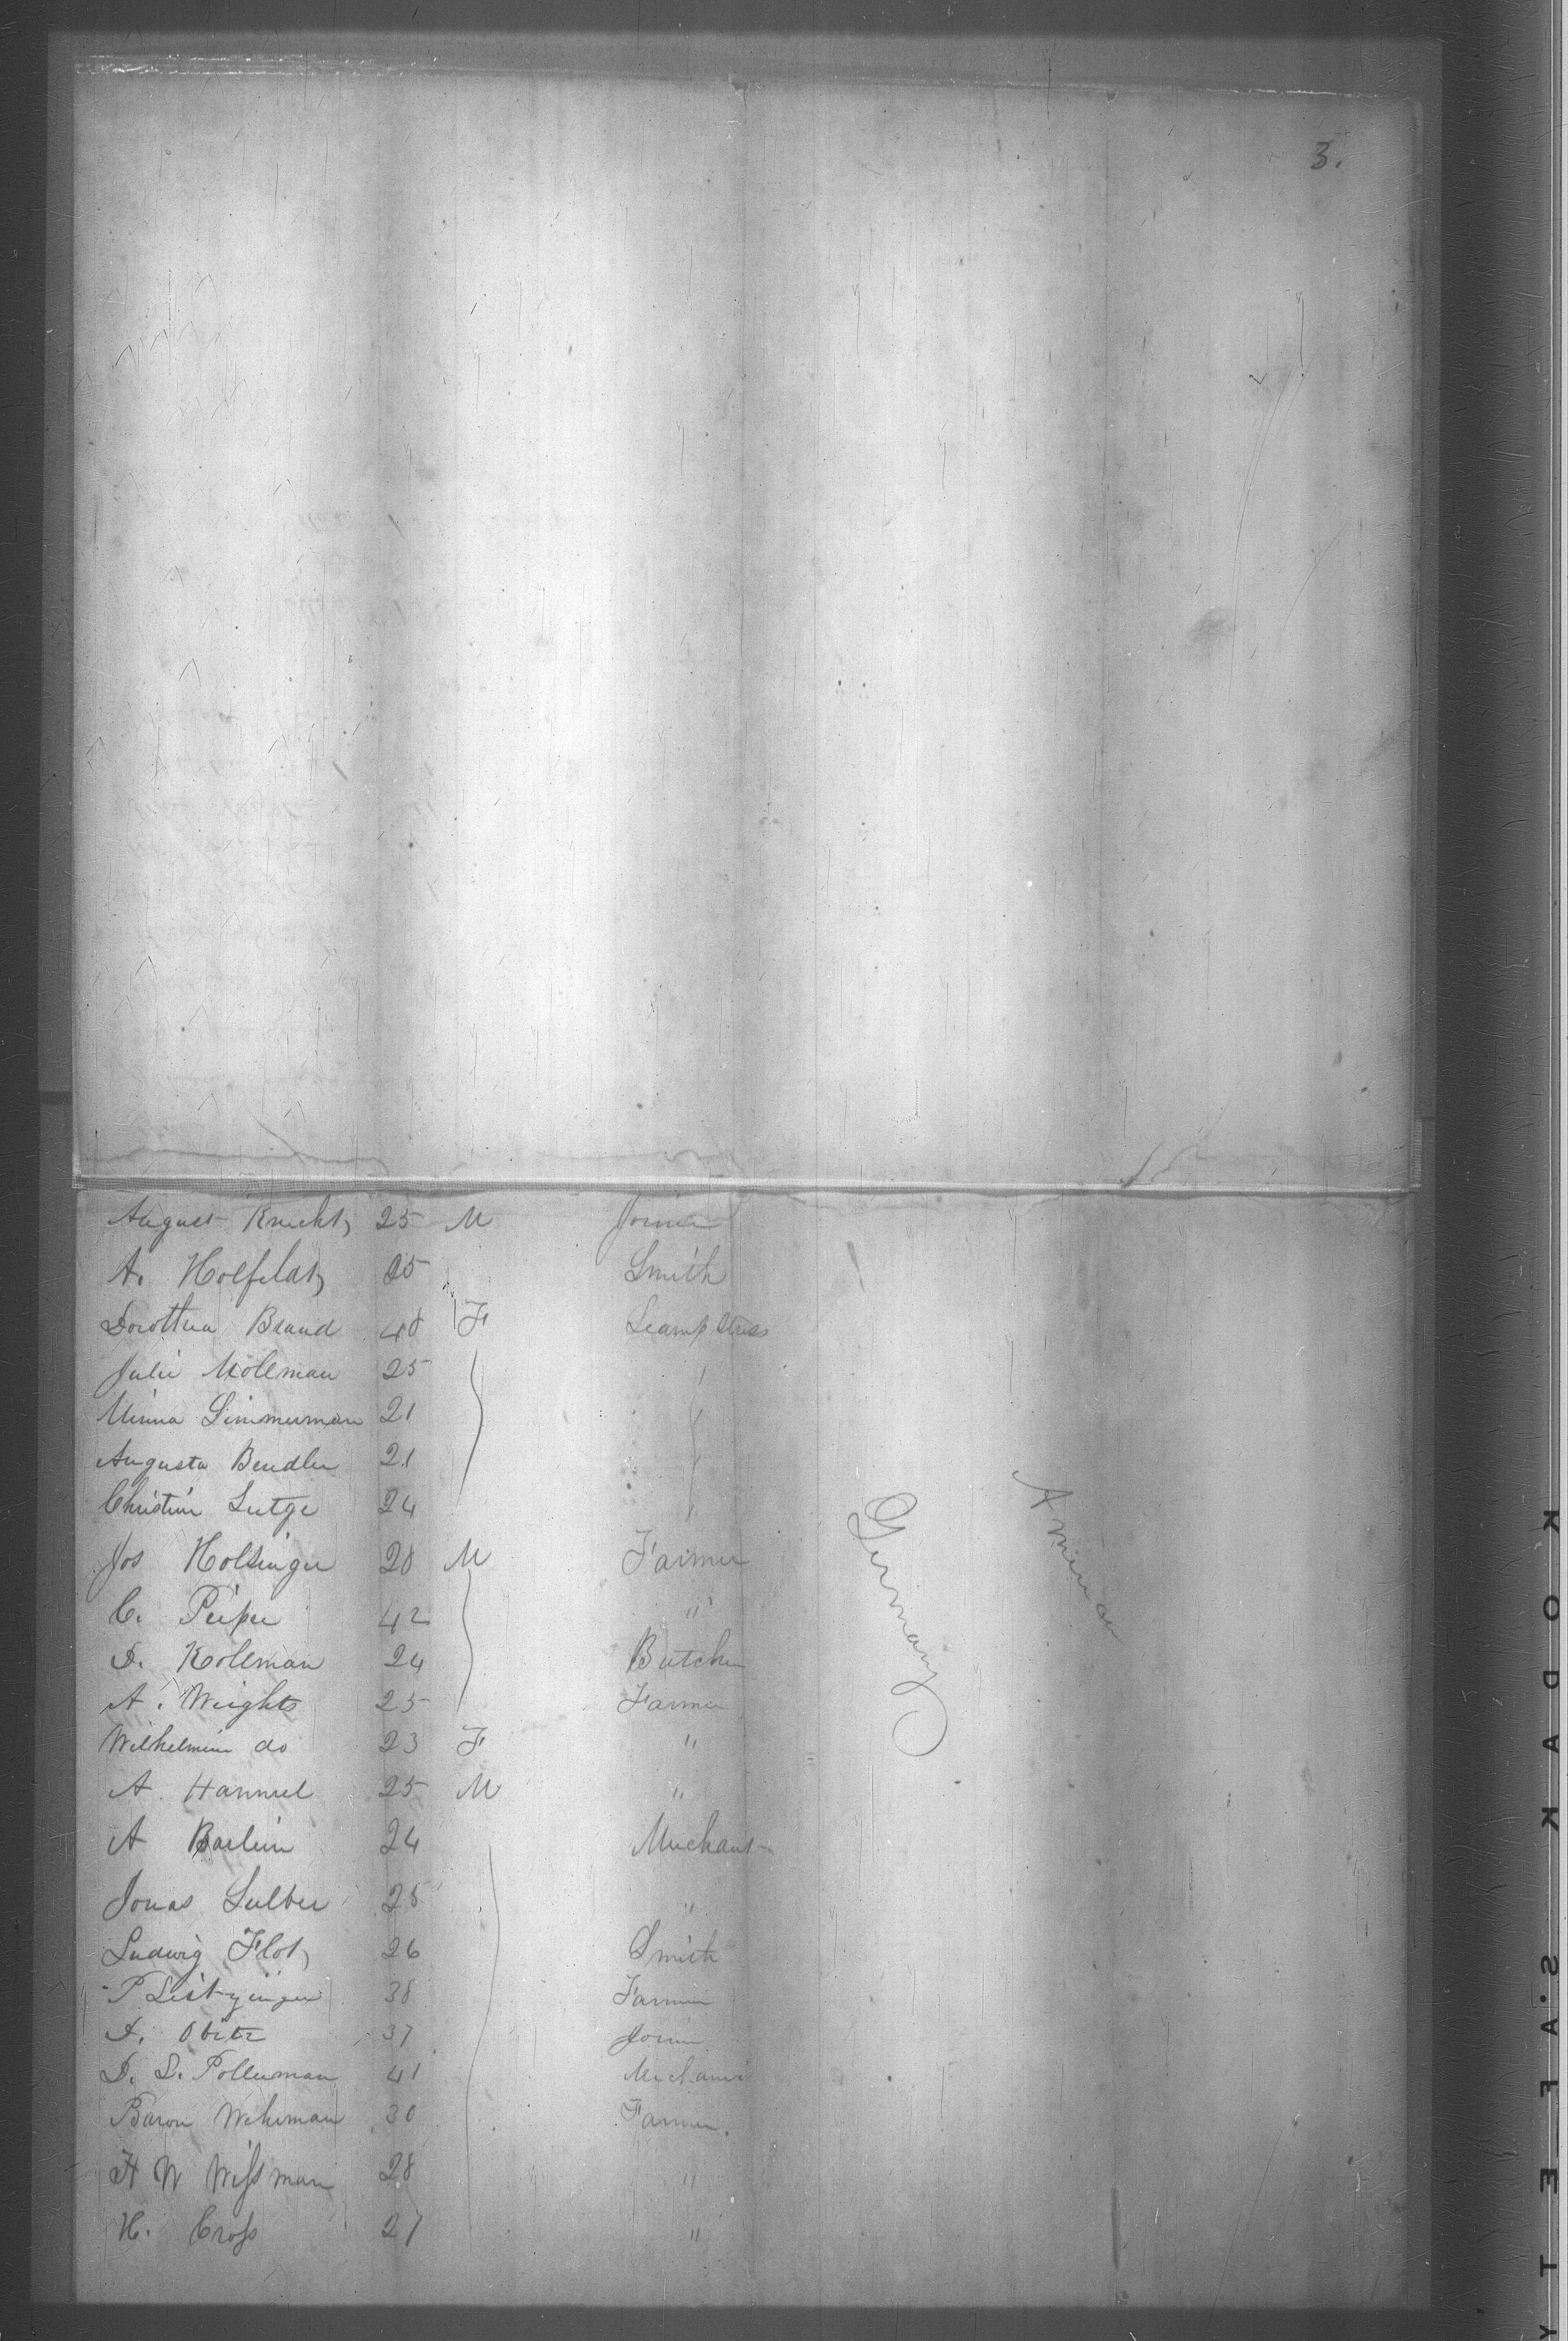 3.
August Knecht 25 M Joiner
A. Holfelatz 25 Smith
Dorothea Brand 48 F Seampstress
Julie Moleman 25
Minna Simmerman 21
Augusta Bendler 21
Christine Lutge 24
Jos Holsinger 28 M Farmer
C. Peiper 42 "
D. Koleman 24 Butcher
A. Weights 25 Farmer
Wilhelmine do 23 F "
A Hammel 25 M "
A Baslein 24 Merchant
Jonas Sulber 25 "
Ludwig Flotz 26 Smith
P 38 Farmer
37 Joiner
D. S. Polleman 41 Mechanic
Baron Wehrman 30 Farmer.
H W Wissman 28 "
H. Cross 27 "
Germany
America
KODAK SAFETY